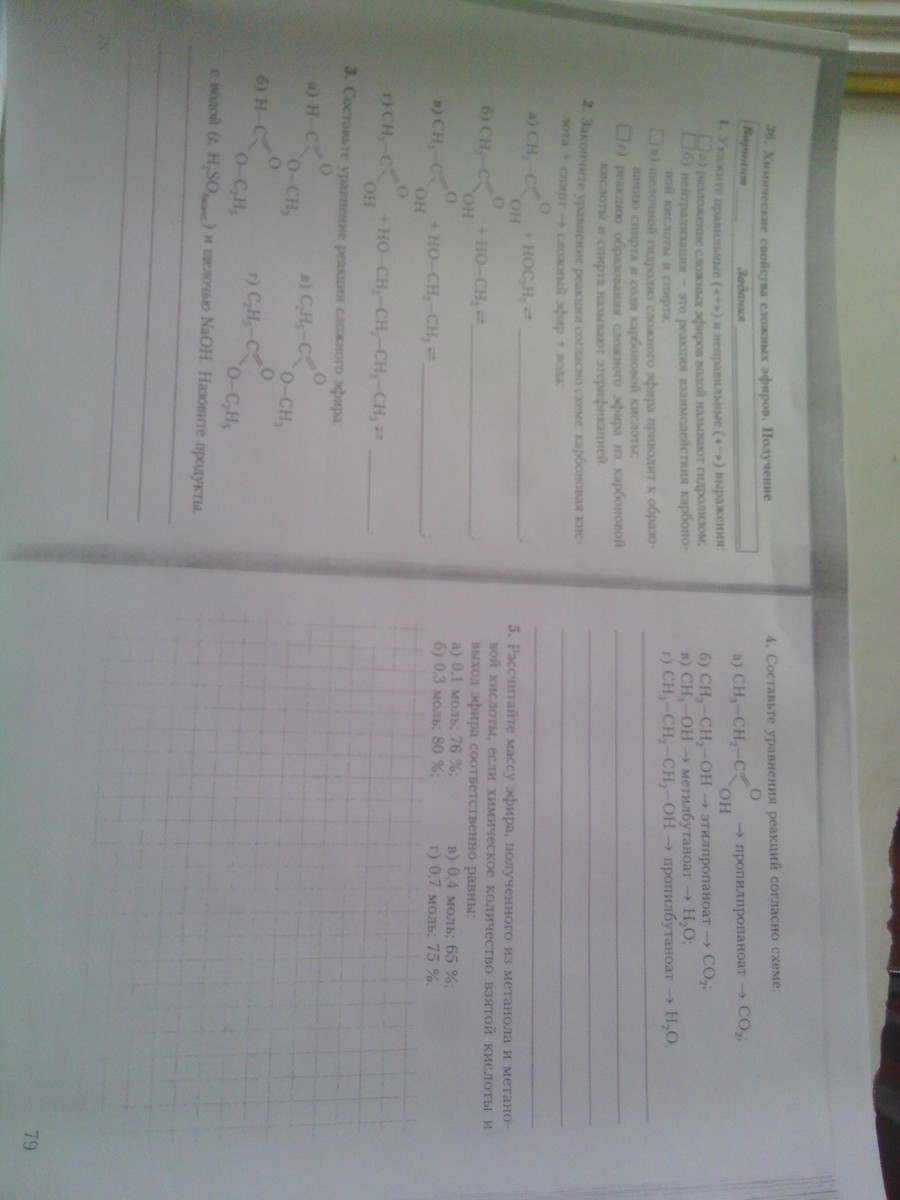 36. Химические свойства сложных эфиров. Получение
Вариант
Задания
1. Укажите правильные («+») и неправильные («−») выражения:
а) разложение сложных эфиров водой называют гидролизом;
б) нейтрализация – это реакция взаимодействия карбоно-
вой кислоты и спирта;
в) щелочной гидролиз сложного эфира приводит к образо-
ванию спирта и соли карбоновой кислоты;
г) реакцию образования сложного эфира из карбоновой
кислоты и спирта называют этерификацией.
2. Закончите уравнение реакции согласно схеме: карбоновая кис-
лота + спирт → сложный эфир + вода:
а) CH₃–C(=O)–OH + HOC₂H₅ ⇄ ;
б) CH₃–C(=O)–OH + HO–CH₃ ⇄ ;
в) CH₃–C(=O)–OH + HO–CH₂–CH₃ ⇄ ;
г) CH₃–C(=O)–OH + HO–CH₂–CH₂–CH₂–CH₃ ⇄ .
3. Составьте уравнение реакции сложного эфира:
а) H–C(=O)–O–CH₃ в) C₂H₅–C(=O)–O–CH₃
б) H–C(=O)–O–C₂H₅ г) C₂H₅–C(=O)–O–C₂H₅
с водой (с H₂SO₄) и щелочью NaOH. Назовите продукты.
4. Составьте уравнения реакций согласно схеме:
а) CH₃–CH₂–C(=O)–OH → пропилпропаноат → CO₂;
б) CH₃–CH₂–OH → этилпропаноат → CO₂;
в) CH₃–OH → метилбутаноат → H₂O;
г) CH₃–CH₂–CH₂–OH → пропилбутаноат → H₂O.
5. Рассчитайте массу эфира, полученного из метанола и метано-
вой кислоты, если химическое количество взятой кислоты и
выход эфира соответственно равны:
а) 0,1 моль; 76 %; в) 0,4 моль; 65 %;
б) 0,3 моль; 80 %; г) 0,7 моль; 75 %.
79